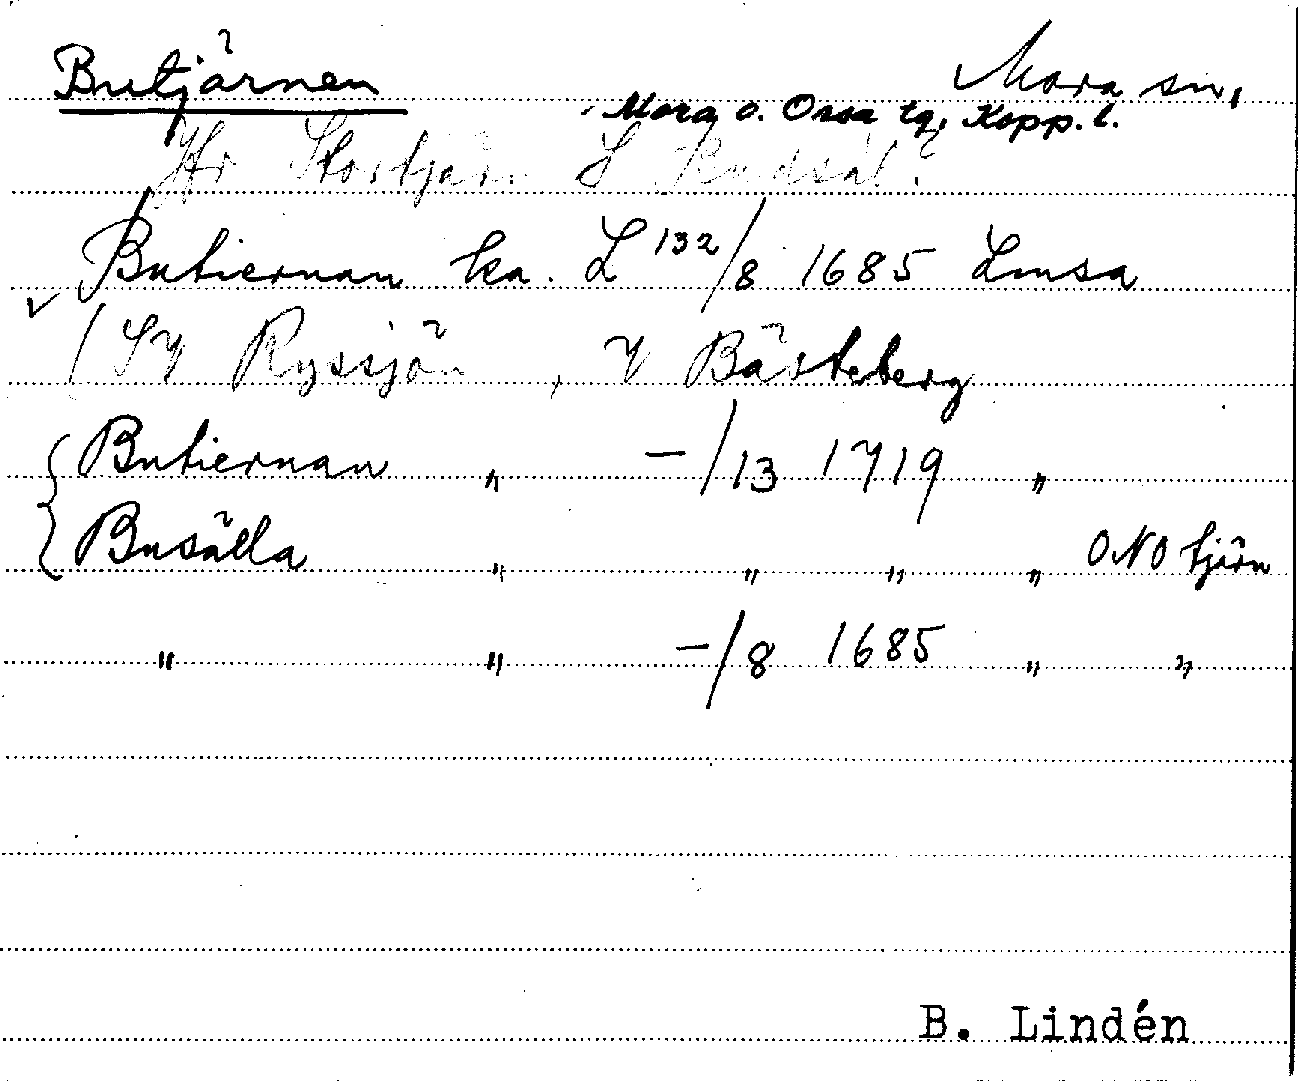 Butjärnen
Mora sn,
Mora o. Orsa tg, Kopp. l.
Stortjärn S
Butiernan ka. L 132/8 1685 Lmsa
(SV Ryssjön, V Bästeberg
Butiernan " -/13 1719 "
Busälla " " " " ONO tjärn
" " -/8 1685 " "
B. Lindén